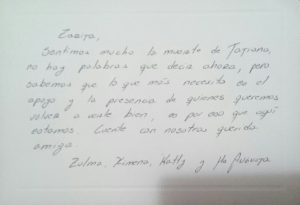 Zarita,
Sentimos mucho la muerte de Tatiana,
no hay palabras que decir ahora, pero
sabemos que lo que más necesita es el
apoyo y la presencia de quienes queremos
volver a verte bien, es por eso que aquí
estamos. Cuente con nosotras querida
amiga.
Zulma, Ximena, Katty y Ma